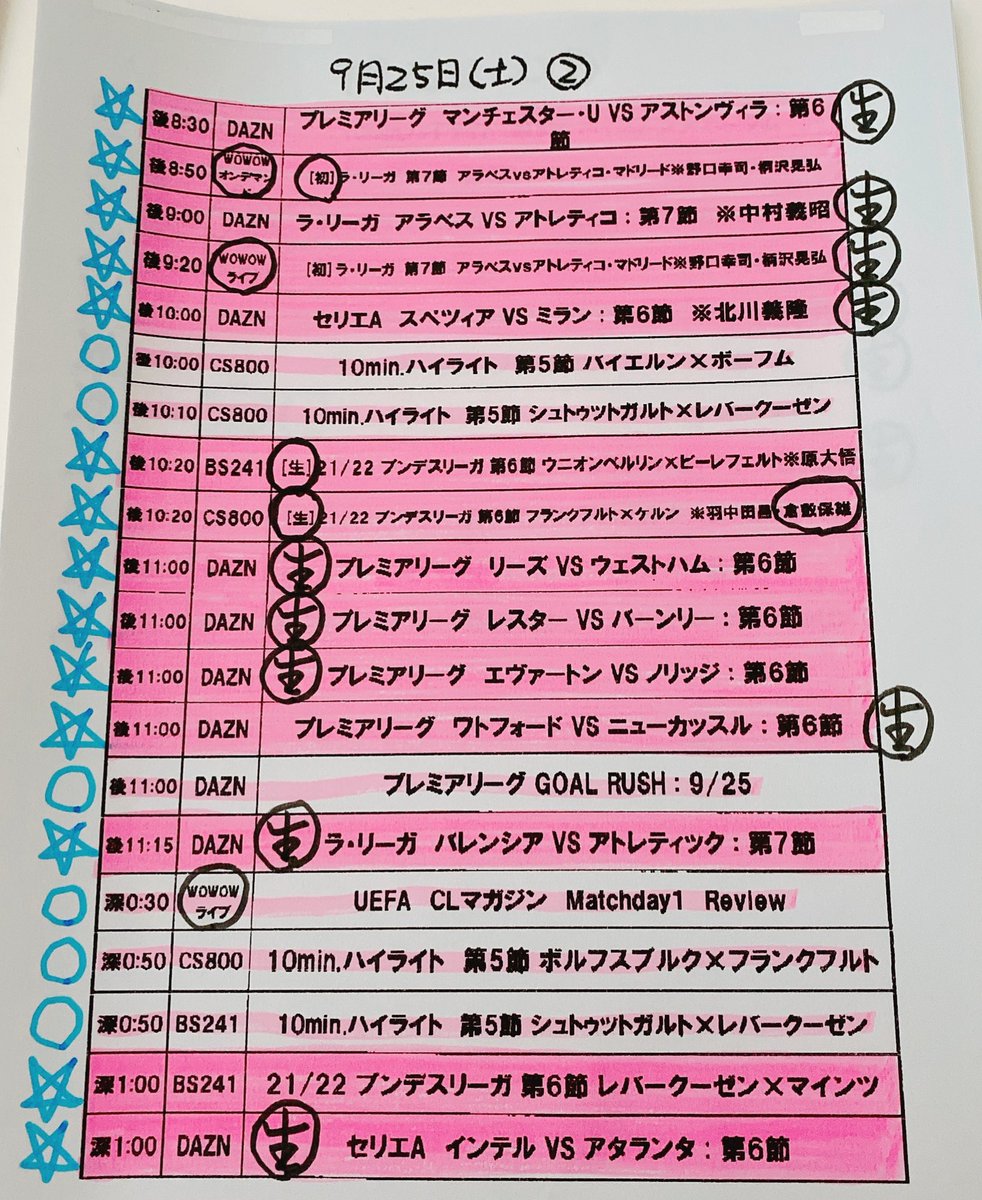 9月25日(土) ②
後8:30 DAZN プレミアリーグ マンチェスター・U VS アストンヴィラ:第6節 生
後8:50 WOWOWオンデマンド [初]ラ・リーガ 第7節 アラベスvsアトレティコ・マドリード※野口幸司・柄沢晃弘
後9:00 DAZN ラ・リーガ アラベス VS アトレティコ:第7節 ※中村義昭 生
後9:20 WOWOWライブ [初]ラ・リーガ 第7節 アラベスvsアトレティコ・マドリード※野口幸司・柄沢晃弘 生
後10:00 DAZN セリエA スペツィア VS ミラン:第6節 ※北川義隆 生
後10:00 CS800 10min.ハイライト 第5節 バイエルン×ボーフム
後10:10 CS800 10min.ハイライト 第5節 シュトゥットガルト×レバークーゼン
後10:20 BS241 [生]21/22 ブンデスリーガ 第6節 ウニオンベルリン×ビーレフェルト※原大悟
後10:20 CS800 [生]21/22 ブンデスリーガ 第6節 フランクフルト×ケルン ※羽中田昌・倉敷保雄
後11:00 DAZN 生 プレミアリーグ リーズ VS ウェストハム:第6節
後11:00 DAZN 生 プレミアリーグ レスター VS バーンリー:第6節
後11:00 DAZN 生 プレミアリーグ エヴァートン VS ノリッジ:第6節
後11:00 DAZN プレミアリーグ ワトフォード VS ニューカッスル:第6節 生
後11:00 DAZN プレミアリーグ GOAL RUSH:9/25
後11:15 DAZN 生 ラ・リーガ バレンシア VS アトレティック:第7節
深0:30 WOWOWライブ UEFA CLマガジン Matchday1 Review
深0:50 CS800 10min.ハイライト 第5節 ボルフスブルク×フランクフルト
深0:50 BS241 10min.ハイライト 第5節 シュトゥットガルト×レバークーゼン
深1:00 BS241 21/22 ブンデスリーガ 第6節 レバークーゼン×マインツ
深1:00 DAZN 生 セリエA インテル VS アタランタ:第6節